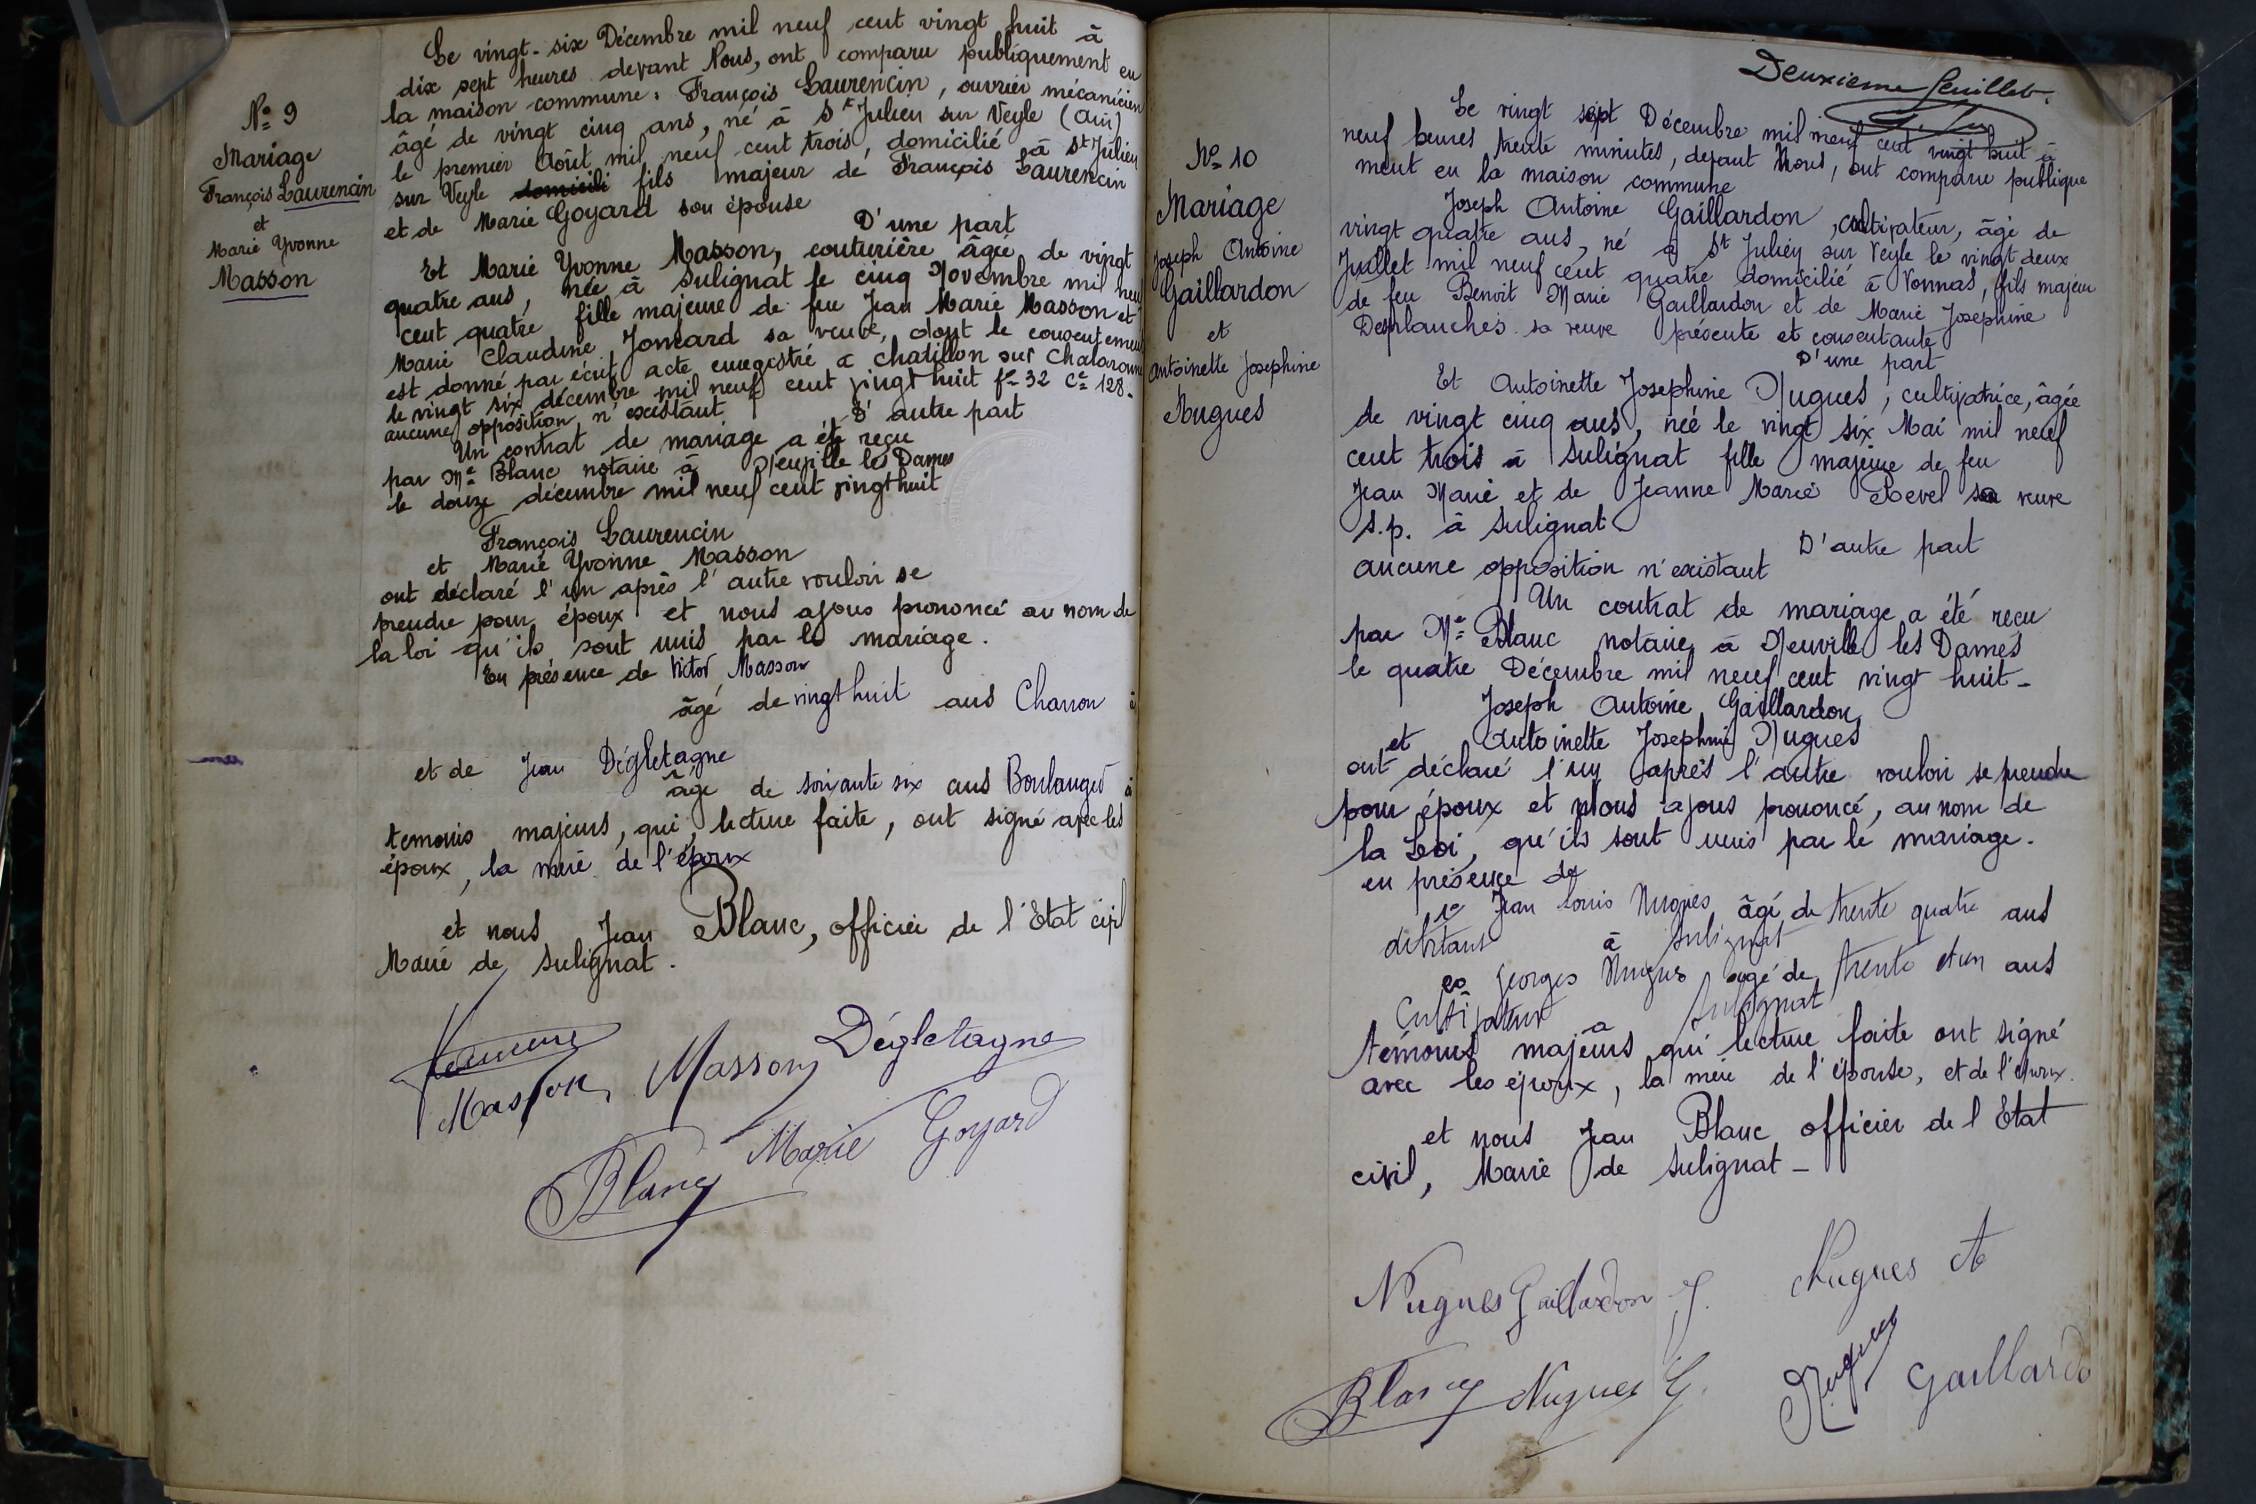 N° 9
Mariage
François Laurencin
et
Marie Yvonne
Masson
Le vingt-six Décembre mil neuf cent vingt huit à
dix sept heures devant Nous, ont comparu publiquement en
la maison commune: François Laurencin, ouvrier mécanicien
âgé de vingt cinq ans, né à St Julien sur Veyle (Ain)
le premier Août mil neuf cent trois, domicilié à St Julien
sur Veyle domicili fils majeur de François Laurencin
et de Marie Goyard son épouse
D'une part
Et Marie Yvonne Masson, couturière âgée de vingt
quatre ans, née à Sulignat le cinq Novembre mil neuf
cent quatre fille majeure de feu Jean Marie Masson et
Marie Claudine Joncard sa veuve, dont le consentement
est donné par écrit acte enregistré à Chatillon sur Chalaronne
le vingt six décembre mil neuf cent vingt huit f° 32 Ce 128.
aucune opposition n'existant D'autre part
Un contrat de mariage a été reçu
par Me Blanc notaire à Neuville les Dames
le douze décembre mil neuf cent vingt huit
François Laurencin
et Marie Yvonne Masson
ont déclaré l'un après l'autre vouloir se
prendre pour époux et nous avons prononcé au nom de
la loi qu'ils sont unis par le mariage.
En présence de Victor Masson
âgé de vingt huit ans Charron à
et de Jean Dégletagne
âgé de soixante six ans Boulanger à
temoins majeurs, qui, lecture faite, ont signé avec les
époux, la mère de l'époux
et nous Jean Blanc, officier de l'Etat civil
Maire de Sulignat.
Masson Masson Dégletagne
Blanc Marie Goyard
Deuxieme feuillet.
N° 10
Mariage
Joseph Antoine
Gaillardon
et
Antoinette Josephine
Nugues
Le vingt sept Décembre mil neuf cent vingt huit à
neuf heures trente minutes, devant Nous, ont comparu publique
ment en la maison commune
Joseph Antoine Gaillardon, cultivateur, âgé de
vingt quatre ans, né à St Julien sur Veyle le vingt deux
Juillet mil neuf cent quatre domicilié à Vonnas, fils majeur
de feu Benoit Marie Gaillardon et de Marie Josephine
Desplanches sa veuve présente et consentante
D'une part
Et Antoinette Josephine Nugues, cultivatrice, âgée
de vingt cinq ans, née le vingt six Mai mil neuf
cent trois à Sulignat fille majeure de feu
Jean Marie et de Jeanne Marie Revel sa veuve
s.p. à Sulignat
D'autre part
aucune opposition n'existant
Un contrat de mariage a été reçu
par Me Blanc notaire à Neuville les Dames
le quatre Décembre mil neuf cent vingt huit-
Joseph Antoine Gaillardon
et Antoinette Josephine Nugues
ont déclaré l'un après l'autre vouloir se prendre
pour époux et Nous avons prononcé, au nom de
la Loi, qu'ils sont unis par le mariage.
en présence de
1° Jean Louis Nugues âgé de trente quatre ans
débitant à Sulignat
2° Georges Nugues âgé de trente et un ans
Cultivateur à Sulignat
témoins majeurs qui lecture faite ont signé
avec les époux, la mère de l'épouse, et de l'époux.
et nous Jean Blanc officier de l'Etat
civil, Maire de Sulignat-
Nugues Gaillardon J. Nugues A
Blanc Nugues G. Nugues Gaillardo